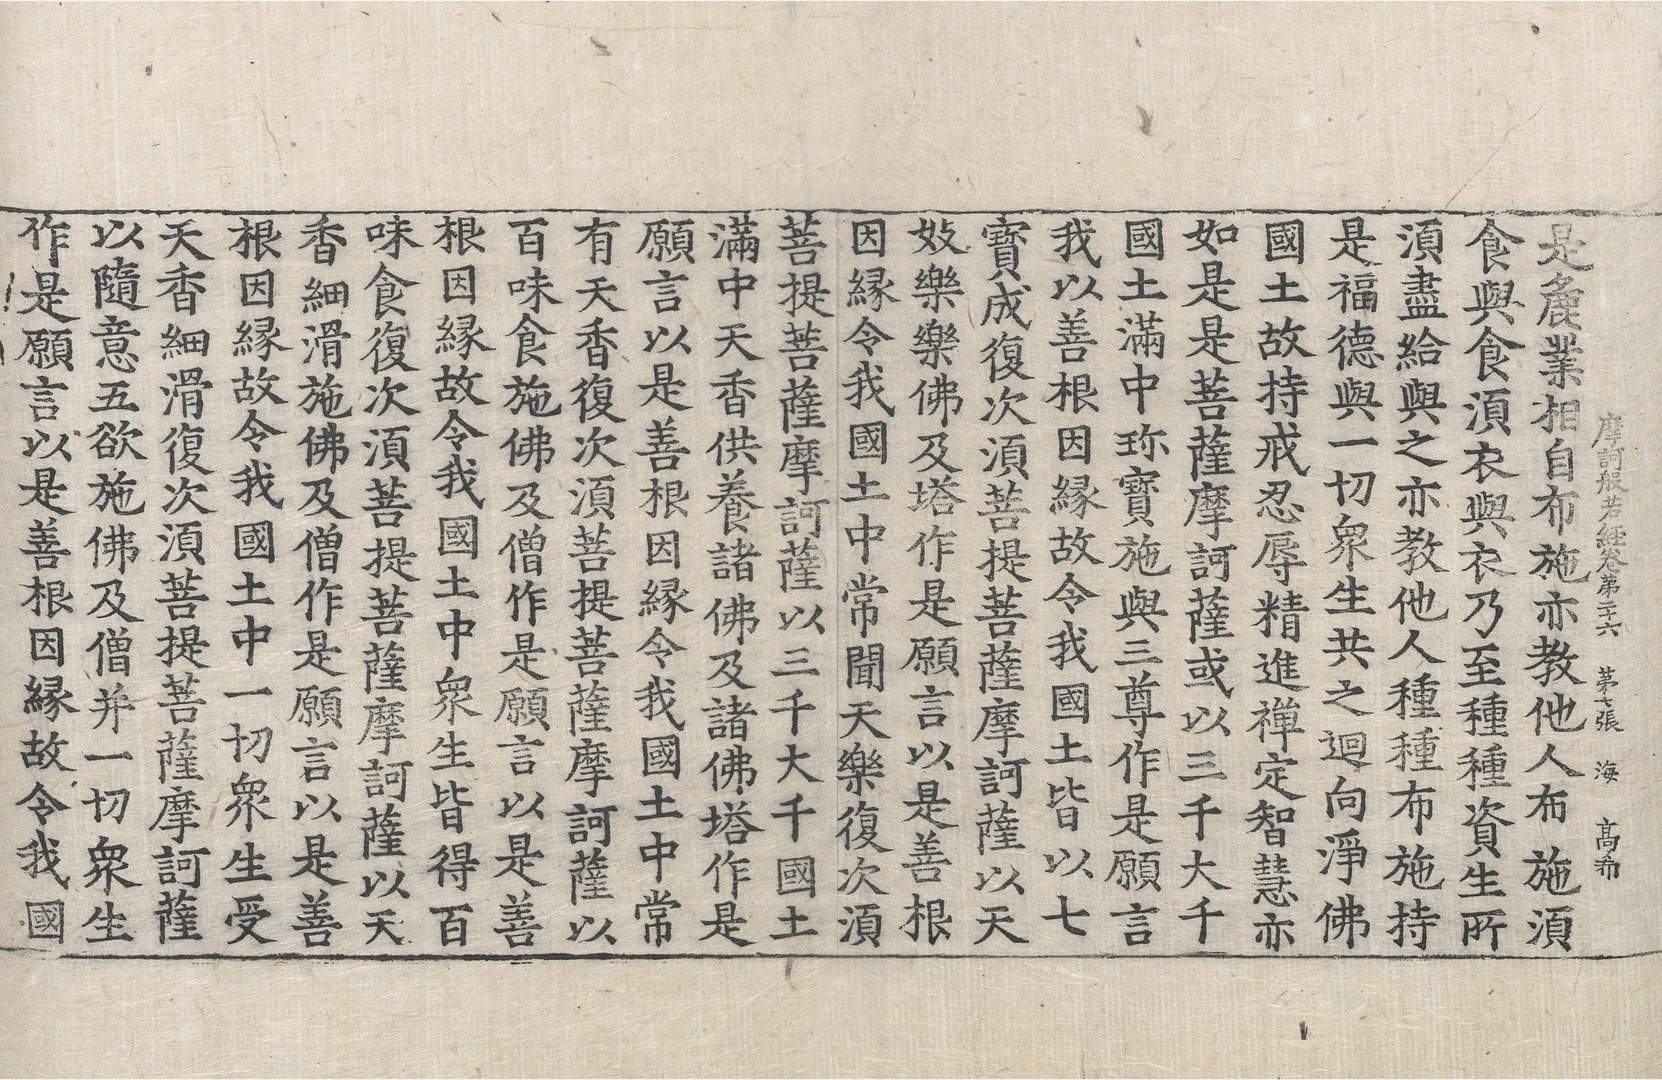 摩訶般若經卷第二十六　第七張　海　高希
是麁業相自布施亦教他人布施須
食與食須衣與衣乃至種種資生所
須盡給與之亦教他人種種布施持
是福德與一切衆生共之迴向淨佛
國土故持戒忍辱精進禪定智慧亦
如是是菩薩摩訶薩或以三千大千
國土滿中珎寶施與三尊作是願言
我以善根因緣故令我國土皆以七
寶成復次須菩提菩薩摩訶薩以天
妓樂樂佛及塔作是願言以是善根
因緣令我國土中常聞天樂復次須
菩提菩薩摩訶薩以三千大千國土
滿中天香供養諸佛及諸佛塔作是
願言以是善根因緣令我國土中常
有天香復次須菩提菩薩摩訶薩以
百味食施佛及僧作是願言以是善
根因緣故令我國土中衆生皆得百
味食復次須菩提菩薩摩訶薩以天
香細滑施佛及僧作是願言以是善
根因緣故令我國土中一切衆生受
天香細滑復次須菩提菩薩摩訶薩
以隨意五欲施佛及僧并一切衆生
作是願言以是善根因緣故令我國